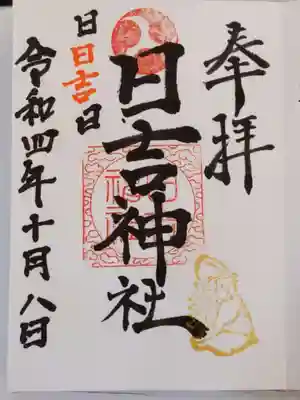 奉拝
日吉神社
日日吉日
令和四年十月八日